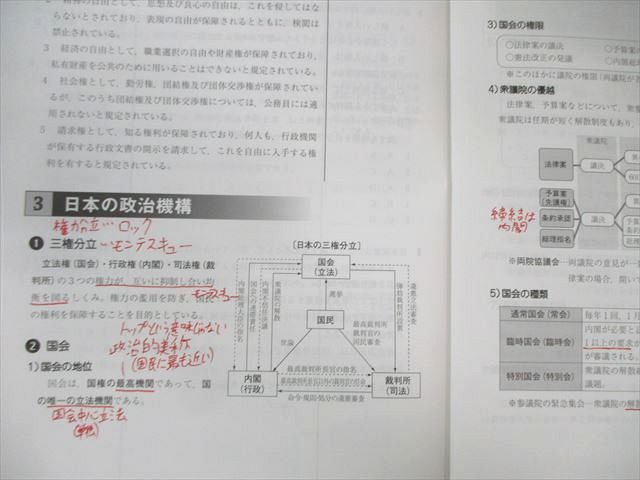 2 精神の自由として、思想及び良心の自由は、これを侵してはな
らないとされており、表現の自由が保障されるとともに、検閲は
禁止されている。
3 経済の自由として、職業選択の自由や財産権が保障されており、
私有財産を公共のために用いることはできないと規定されている。
4 社会権として、勤労権、団結権及び団体交渉権が保障されてい
るが、このうち団結権及び団体交渉権については、公務員には適
用されないと規定されている。
5 請求権として、知る権利が保障されており、何人も、行政機関
が保有する行政文書の開示を請求して、これを自由に入手する権
利を有すると規定されている。
3 日本の政治機構
権力分立…ロック
❶ 三権分立…モンテスキュー
立法権（国会）・行政権（内閣）・司法権（裁
判所）の3つの権力が、互いに抑制し合い均
モンテスキュー
衡を図るしくみ。権力の濫用を防ぎ、国民
の権利を保障することを目的としている。
トップという意味じゃない
❷ 国会
政治的美称
(国民に最も近い)
1）国会の地位
国会は、国権の最高機関であって、国
の唯一の立法機関である。
国会中心立法
〔日本の三権分立〕
国会
（立法）
内閣総理大臣の指名
国会への連帯責任
内閣不信任決議
衆議院の解散
選挙
弾劾裁判所設置
違憲立法審査
国民
世論
最高裁判所
裁判官の
国民審査
内閣
（行政）
最高裁判所長官の指名
最高裁判所長官以外の裁判官の任命
裁判所
（司法）
命令・規則・処分の違憲審査
3）国会の権限
○法律案の議決
○憲法改正の発議
○予算案
○内閣総
※このほかに議院の権限（両議院が
4）衆議院の優越
法律案、予算案などについて、衆
衆議院は任期が短く解散制度もあり、
衆議院
法律案
議決
予算案
［先議権］
条約承認
議決
総理指名
締結は
内閣
※両院協議会―両議院の意見が一
律案の場合、開いて
5）国会の種類
通常国会（常会）
毎年1回、1月
臨時国会（臨時会）
内閣が必要と
1以上の要求が
が審議される。
特別国会（特別会）
衆議院の解散総
議題。
※参議院の緊急集会―衆議院の解散